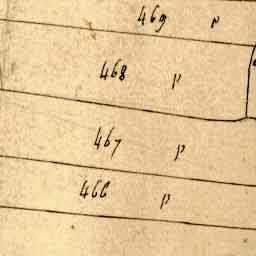 469 p
468 p
467 p
466 p